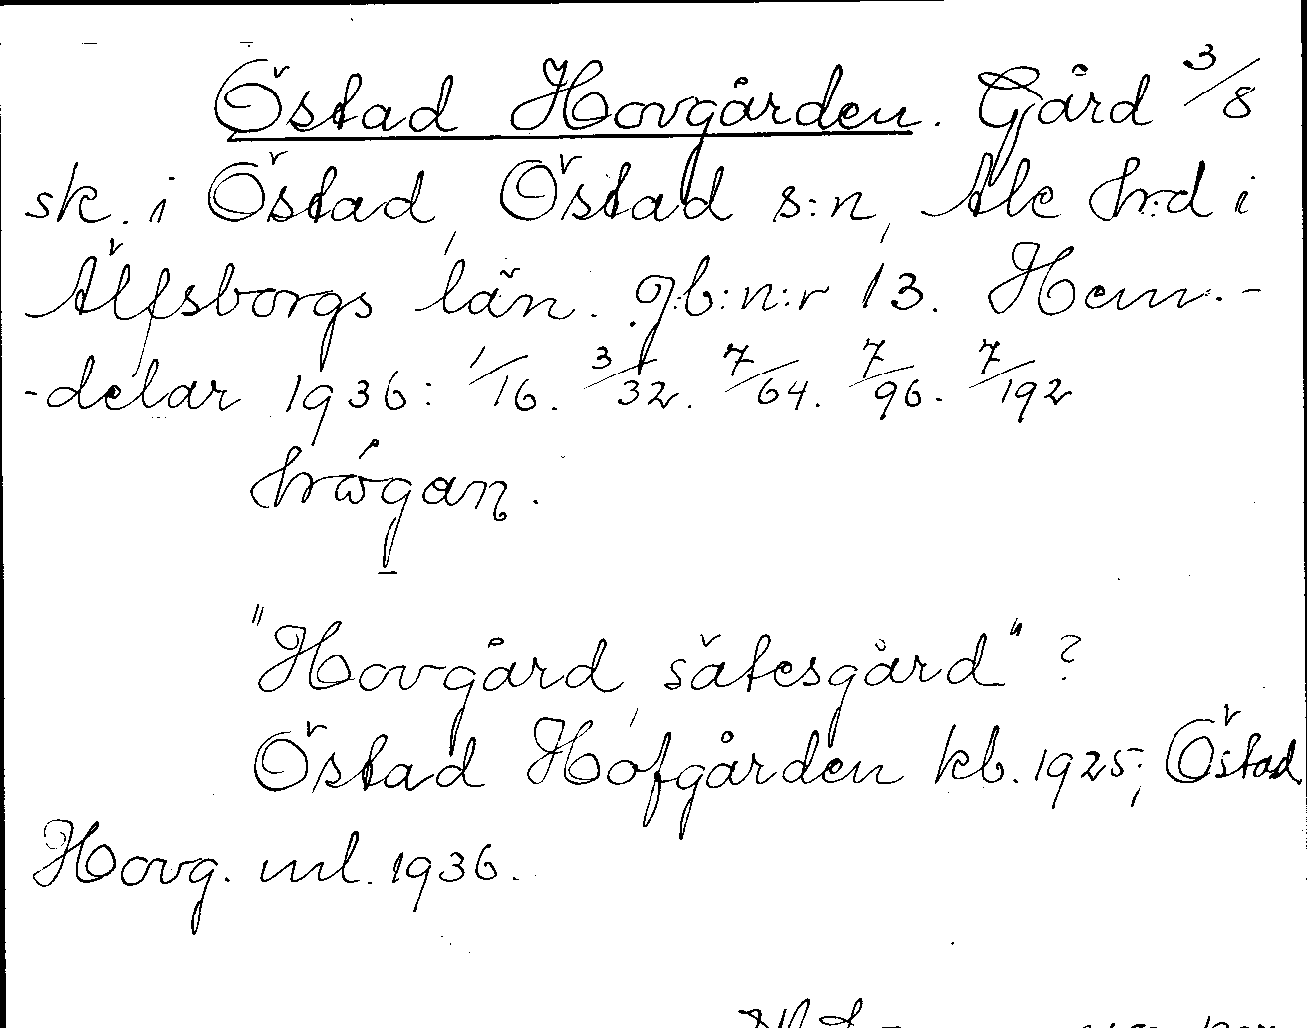 Östad Hovgården. Gård 3/8
sk. i Östad, Östad s:n, Ale h:d i
Älfsborgs län. g.b:n:r 13. Hem.-
-delar 1936: 1/16. 3/32. 7/64. 7/96. 7/192
"Hovgård, sätesgård" ?
Östad Hofgården kb. 1925; Östad
Hovg. ml. 1936.